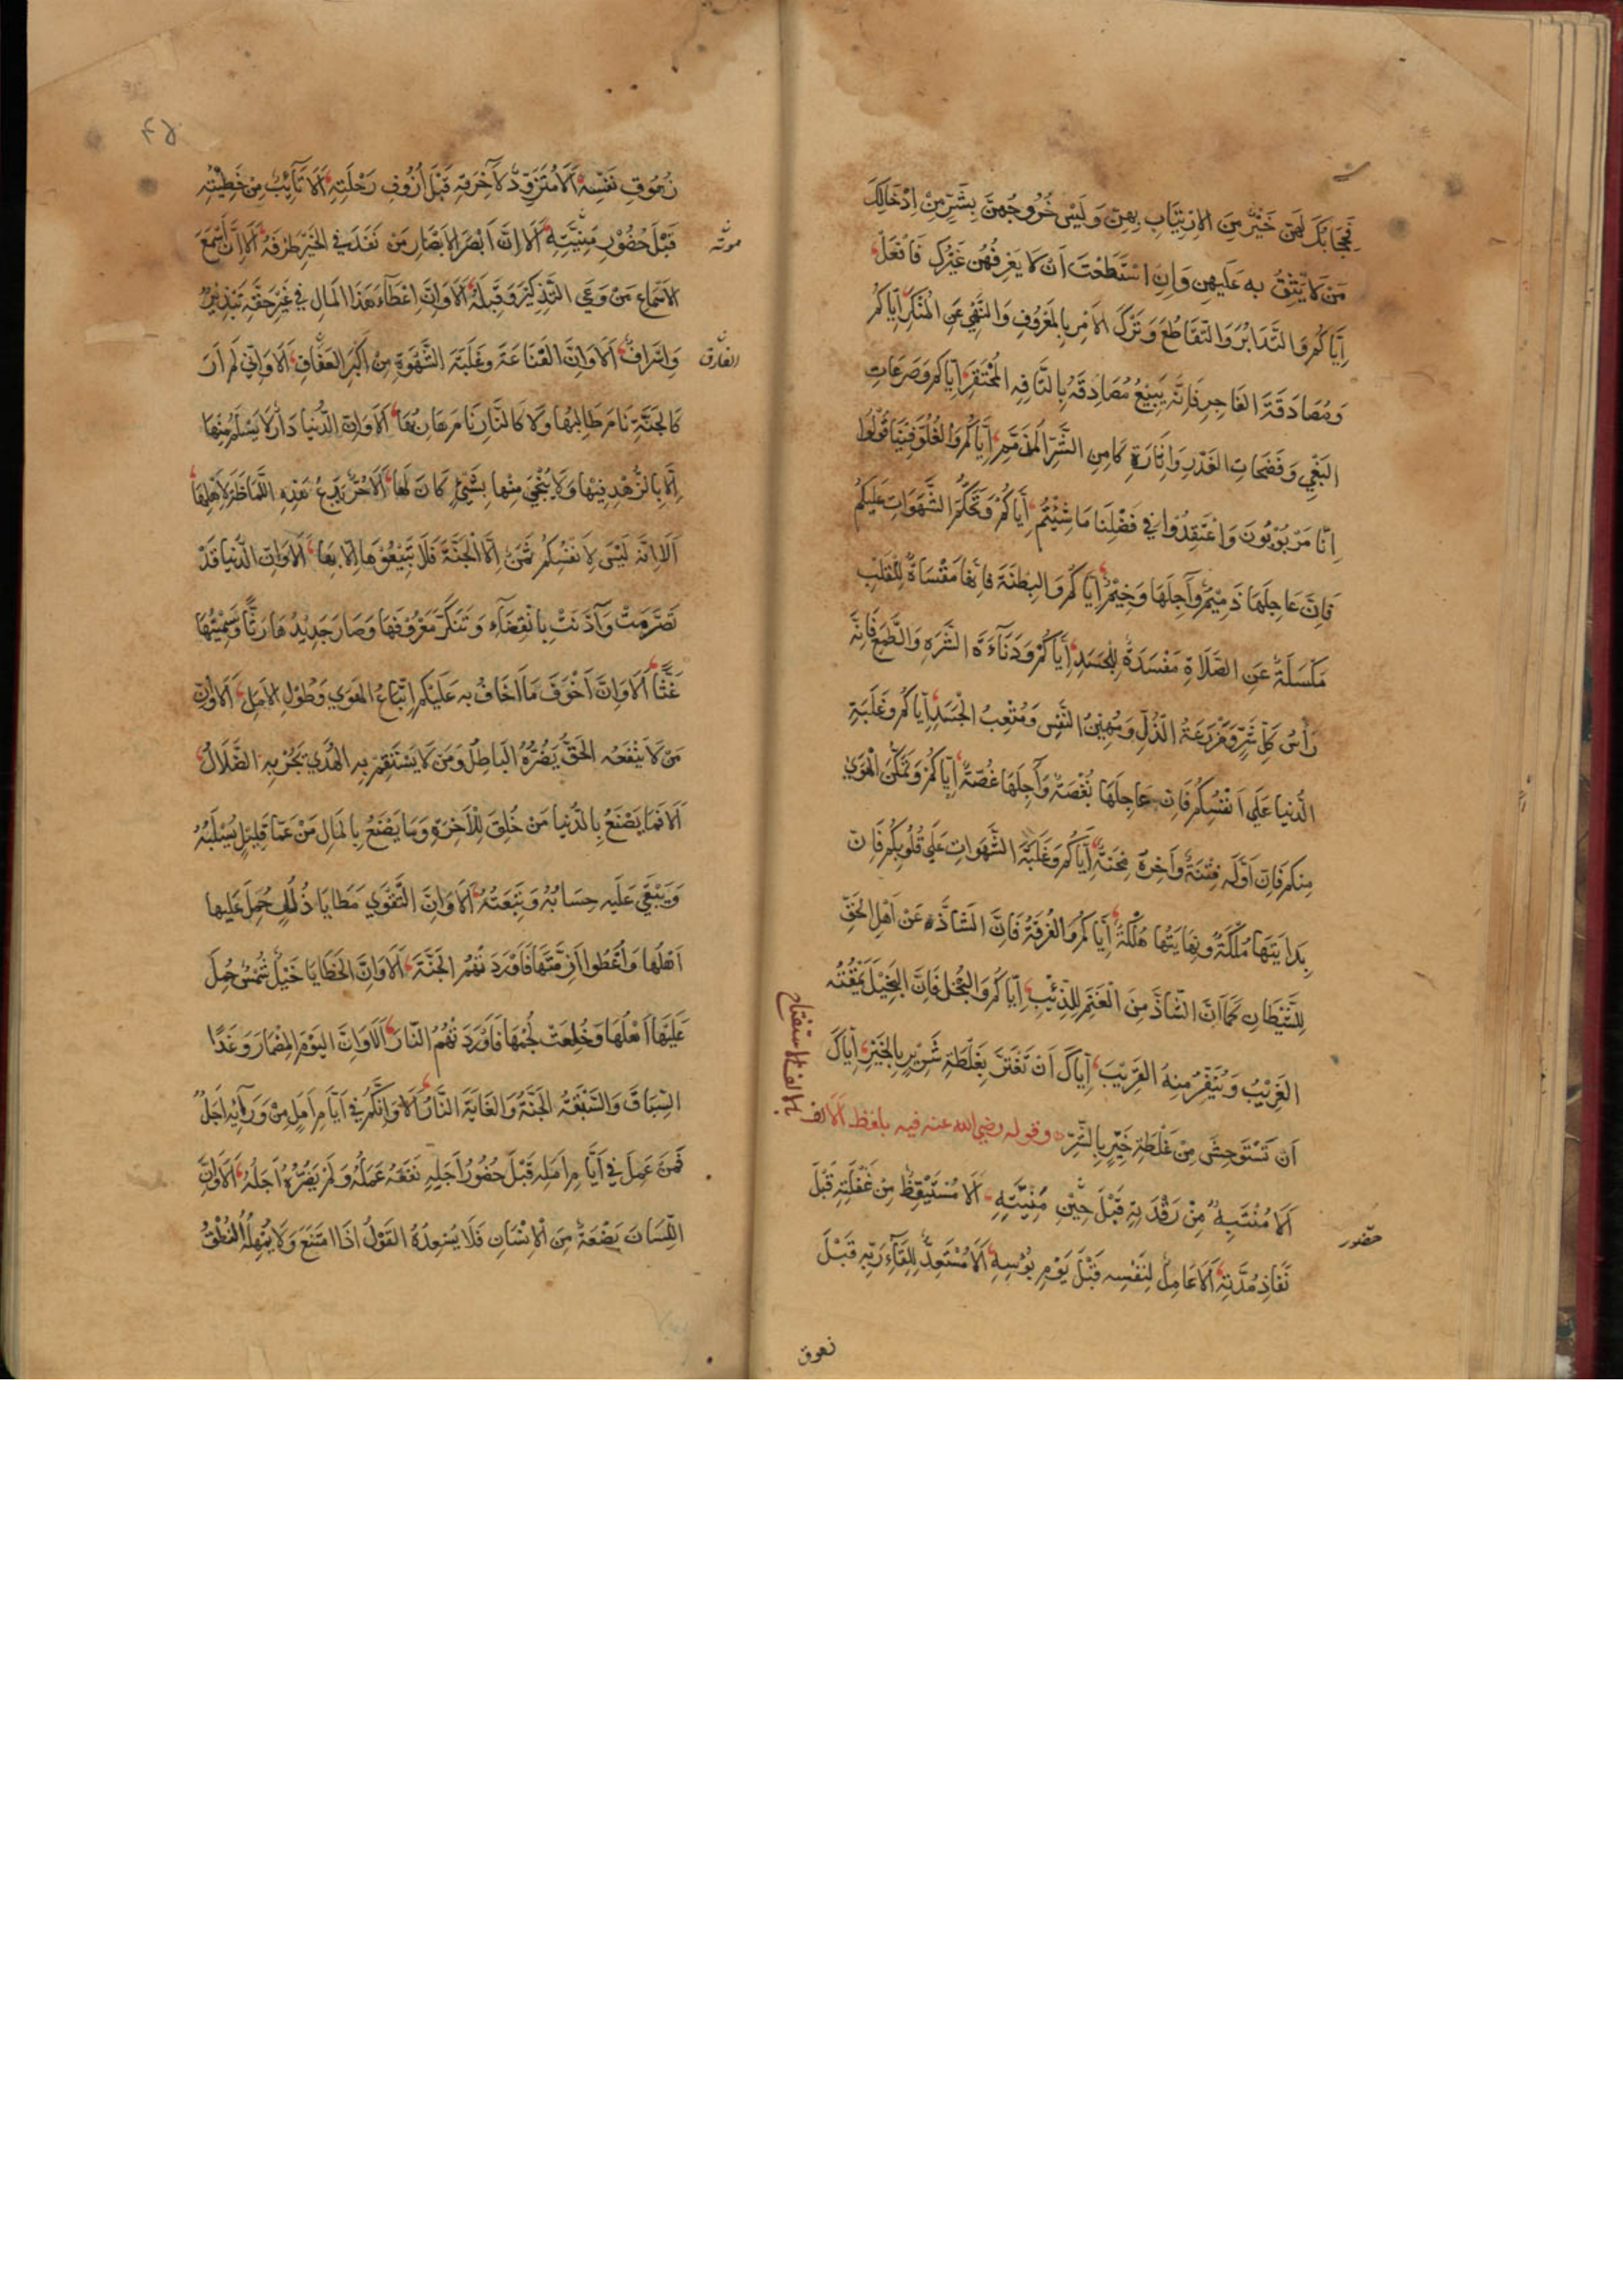 فحجابك لهن خَيْرٌ مِنَ الاِرْتِيَابِ بِهِنَّ وَلَيْسَ خُرُوجُهُنَّ بِشَرٍّ مِنْ اِدْخَالِكَ
مَنْ لَا يُثَقُ بِهِ عَلَيهِن وَاِنِ اسْتَطَعْتَ اَنْ لَا يَعْرِفُهُن غَيْرُكَ فَافْعَلْ
اِيَّاكُم وَالتَّدَابُرَ وَالتَّقَاطُعَ وَتَرْكَ الاَمْرِ بِالمَعْرُوفِ وَالنَّهْيِ عَنِ المُنْكَرِ اِيَّاكُمْ
وَمُصَادَقَةَ الفَاجِرِ فَاِنَّه يَبِيْعُ مُصَادِقَهُ بِالتَّافِهِ المُحْتَقَرِ اِيَّاكم وَصَرَعَاتِ
البَغْيِ وَفَضَحَاتِ الغَدْرِ وَاِثَارَةِ كَامِنِ الشَّرِّ المُذَمَّمِ اِيَّاكُمْ وَالغُلُوَّ فِيْنَا قُوْلُوا
اِنَّا مَرْبُوْبُوْنَ وَاعْتَقِدُوا فِي فَضْلِنَا مَا شِئْتُمْ اِيَّاكُمْ وَتَحَكُّمَ الشَّهَوَاتِ عَلَيْكُمْ
فَاِنَّ عَاجِلَهَا ذَمِيْمٌ وَآجِلَهَا وَخِيْمٌ اِيَّاكُمْ وَالبِطْنَةَ فَاِنَّهَا مَقْسَاةٌ لِلْقَلْبِ
مَكْسَلَةٌ عَنِ الصَّلَاةِ مَفْسَدَةٌ لِلْجَسَدِ اِيَّاكُمْ وَدَنَآءَةَ الشَّرَهِ وَالطَّمَعِ فَاِنَّه
رَأْسُ كُلِّ شَرٍّ وَمَزْرَعَةُ الذُّلِّ وَمُهِيْنُ النَّفْسِ وَمُتْعِبُ الْجَسَدِ اِيَّاكُم وَغَلَبَةِ
الدُّنيا عَلَى اَنْفُسِكُم فَاِنَّ عَاجِلَهَا نُغْصَةٌ وَآجِلَهَا غُصَّةٌ اِيَّاكُمْ وَتَمَكُّنَ الْهَوَى
مِنكم فَاِنَّ اَوَّلَه فِتْنَةٌ وَآخِرَهُ مِحْنَةٌ اِيَّاكُم وَغَلَبَةَ الشَّهَوَاتِ عَلَى قُلُوْبِكُمْ فَاِنَّ
بِدَايَتَهَا مَلَكَةٌ وَنِهَايَتُهَا هَلَكَةٌ اِيَّاكُم وَالفُرْقَةَ فَاِنَّ الشَّاذَّ عَنْ اَهْلِ الْحَقِّ
لِلشَّيْطَانِ كَمَا اَنَّ الشَّاذَّ مِنَ الْغَنَمِ لِلذِّئْبِ اِيَّاكُم وَالبُخْلَ فَاِنَّ البَخِيْلَ يَمْقُتُهُ
الغَرِيْبُ وَيَنْفِرُ مِنْهُ القَرِيْبَ اِيَّاكَ اَنْ تَغْتَرَّ بِغَلْطَةِ شَرِيْرٍ بِالْخَيْرِ اِيَّاكَ
اَنْ تَسْتَوْحِشَ مِنْ غَلْطَةِ خَيِّرٍ بِالشَّرِّ وقوله رضي الله عنه فيه بلفظ اَلَا الف
بالف الاستفتاح
اَلَا مُنْتَبِهٌ مِنْ رَقْدَتِهِ قَبْلَ حِيْنِ مَنِيَّتِهِ اَلَا مُسْتَيْقِظٌ مِنْ غَفْلَتِهِ قَبْلَ
حضور
نَفَاذِ مُدَّتِهِ اَلَا عَامِلٌ لِنَفْسِه قَبْلَ يَوْمِ بُؤْسِهِ اَلَا مُسْتَعِدٌّ لِلِقَآءِ رَبِّهِ قَبْلَ
زهوق
زُهُوْقِ نَفْسِهِ اَلَا مُتَزَوِّدٌ لِآخِرَتِهِ قَبْلَ اُزُوْفِ رَحْلَتِهِ اَلَا تَآئِبٌ مِنْ خَطِيْئَتِهِ
قَبْلَ حُضُوْرِ مَنِيَّتِهِ اَلَا اِنَّ اَبْصَرَ الاَبْصَارِ مَنْ نَفَذَ فِي الخَيْرِ طَرْفُهُ اَلَا اِنَّ اَسْمَعَ
موته
الاَسْمَاعِ مَنْ وَعَى التَّذْكِيْرَ وَقَبِلَهُ اَلَا وَاِنَّ اِعْطَآءَ هَذَا المَالِ فِي غَيْرِ حَقِّهِ تَبْذِيْرٌ
وَاِسْرَافٌ اَلَا وَاِنَّ القَنَاعَةَ وَغَلَبَةَ الشَّهْوَةِ مِنْ اَكْبَرِ العَفَافِ اَلَا وَاِنِّي لَمْ اَرَ
كَالجَنَّةِ نَامَ طَالِبُهَا وَلَا كَالنَّارِ نَامَ هَارِبُهَا اَلَا وَاِنَّ الدُّنْيَا دَارٌ لَا يُسْلَمُ مِنْهَا
اِلَّا بِالزُّهْدِ فِيْهَا وَلَا يُنْجَى مِنْهَا بِشَيْءٍ كَانَ لَهَا اَلَا حُرٌّ يَدَعُ هَذِهِ اللُّمَاظَةَ لِاَهْلِهَا
اَلَا اِنَّه لَيْسَ لِاَنْفُسِكُمْ ثَمَنٌ اِلَّا الْجَنَّةَ فَلَا تَبِيْعُوْهَا اِلَّا بِهَا اَلَا وَاِنَّ الدُّنْيَا قَدْ
تَصَرَّمَتْ وَآذَنَتْ بِانْقِضَآءٍ وَتَنَكَّرَ مَعْرُوْفُهَا وَصَارَ جَدِيْدُهَا رَثًّا وَسَمِيْنُهَا
غَثًّا اَلَا وَاِنَّ اَخْوَفَ مَا اَخَافُ بِه عَلَيْكُم اِتِّبَاعُ الهَوَى وَطُوْلِ الاَمَلِ اَلَا وَاِنَّ
مَنْ لَا يَنْفَعُه الحَقُّ يَضُرُّهُ البَاطِلُ وَمَنْ لَا يَسْتَقِمْ بِهِ الهُدَى يَجُرُّ بِهِ الضَّلَالُ
اَلَا فَمَا يَصْنَعُ بِالدُّنْيَا مَنْ خُلِقَ لِلْآخِرَةِ وَمَا يَصْنَعُ بِالمَالِ مَنْ عَمَّا قَلِيْلٍ يُسْلَبُهُ
وَيَبْقَى عَلَيْهِ حِسَابُهُ وَتَبِعَتُهُ اَلَا وَاِنَّ التَّقْوَى مَطَايَا ذُلُلٌ حُمِلَ عَلَيْها
اَهْلُهَا وَاُعْطُوا اَزِمَّتَهَا فَاَوْرَدَتْهُمُ الجَنَّةَ اَلَا وَاِنَّ الخَطَايَا خَيْلٌ شُمُسٌ حُمِلَ
عَلَيْهَا اَهْلُهَا وَخُلِعَتْ لُجُمُهَا فَاَوْرَدَتْهُمُ النَّارَ اَلَا وَاِنَّ اليَوْمَ المِضْمَارَ وَغَدًا
السِّبَاقَ وَالسَّبْقَةُ الجَنَّةُ وَالغَايَةُ النَّارُ اَلَا وَاِنَّكُم فِي اَيَّامِ اَمَلٍ مِنْ وَرَآئِه اَجَلٌ
فَمَنْ عَمِلَ فِي اَيَّامِ اَمَلِه قَبْلَ حُضُوْرِ اَجَلِهِ نَفَعَهُ عَمَلُهُ وَلَمْ يَضُرُّهُ اَجَلُهُ اَلَا وَاِنَّ
اللِّسَانَ بَضْعَةٌ مِنَ الْاِنْسَانِ فَلَا يُسْعِدُهُ القَوْلُ اِذَا امْتَنَعَ وَلَا يُمْهِلُهُ النُّطْقُ